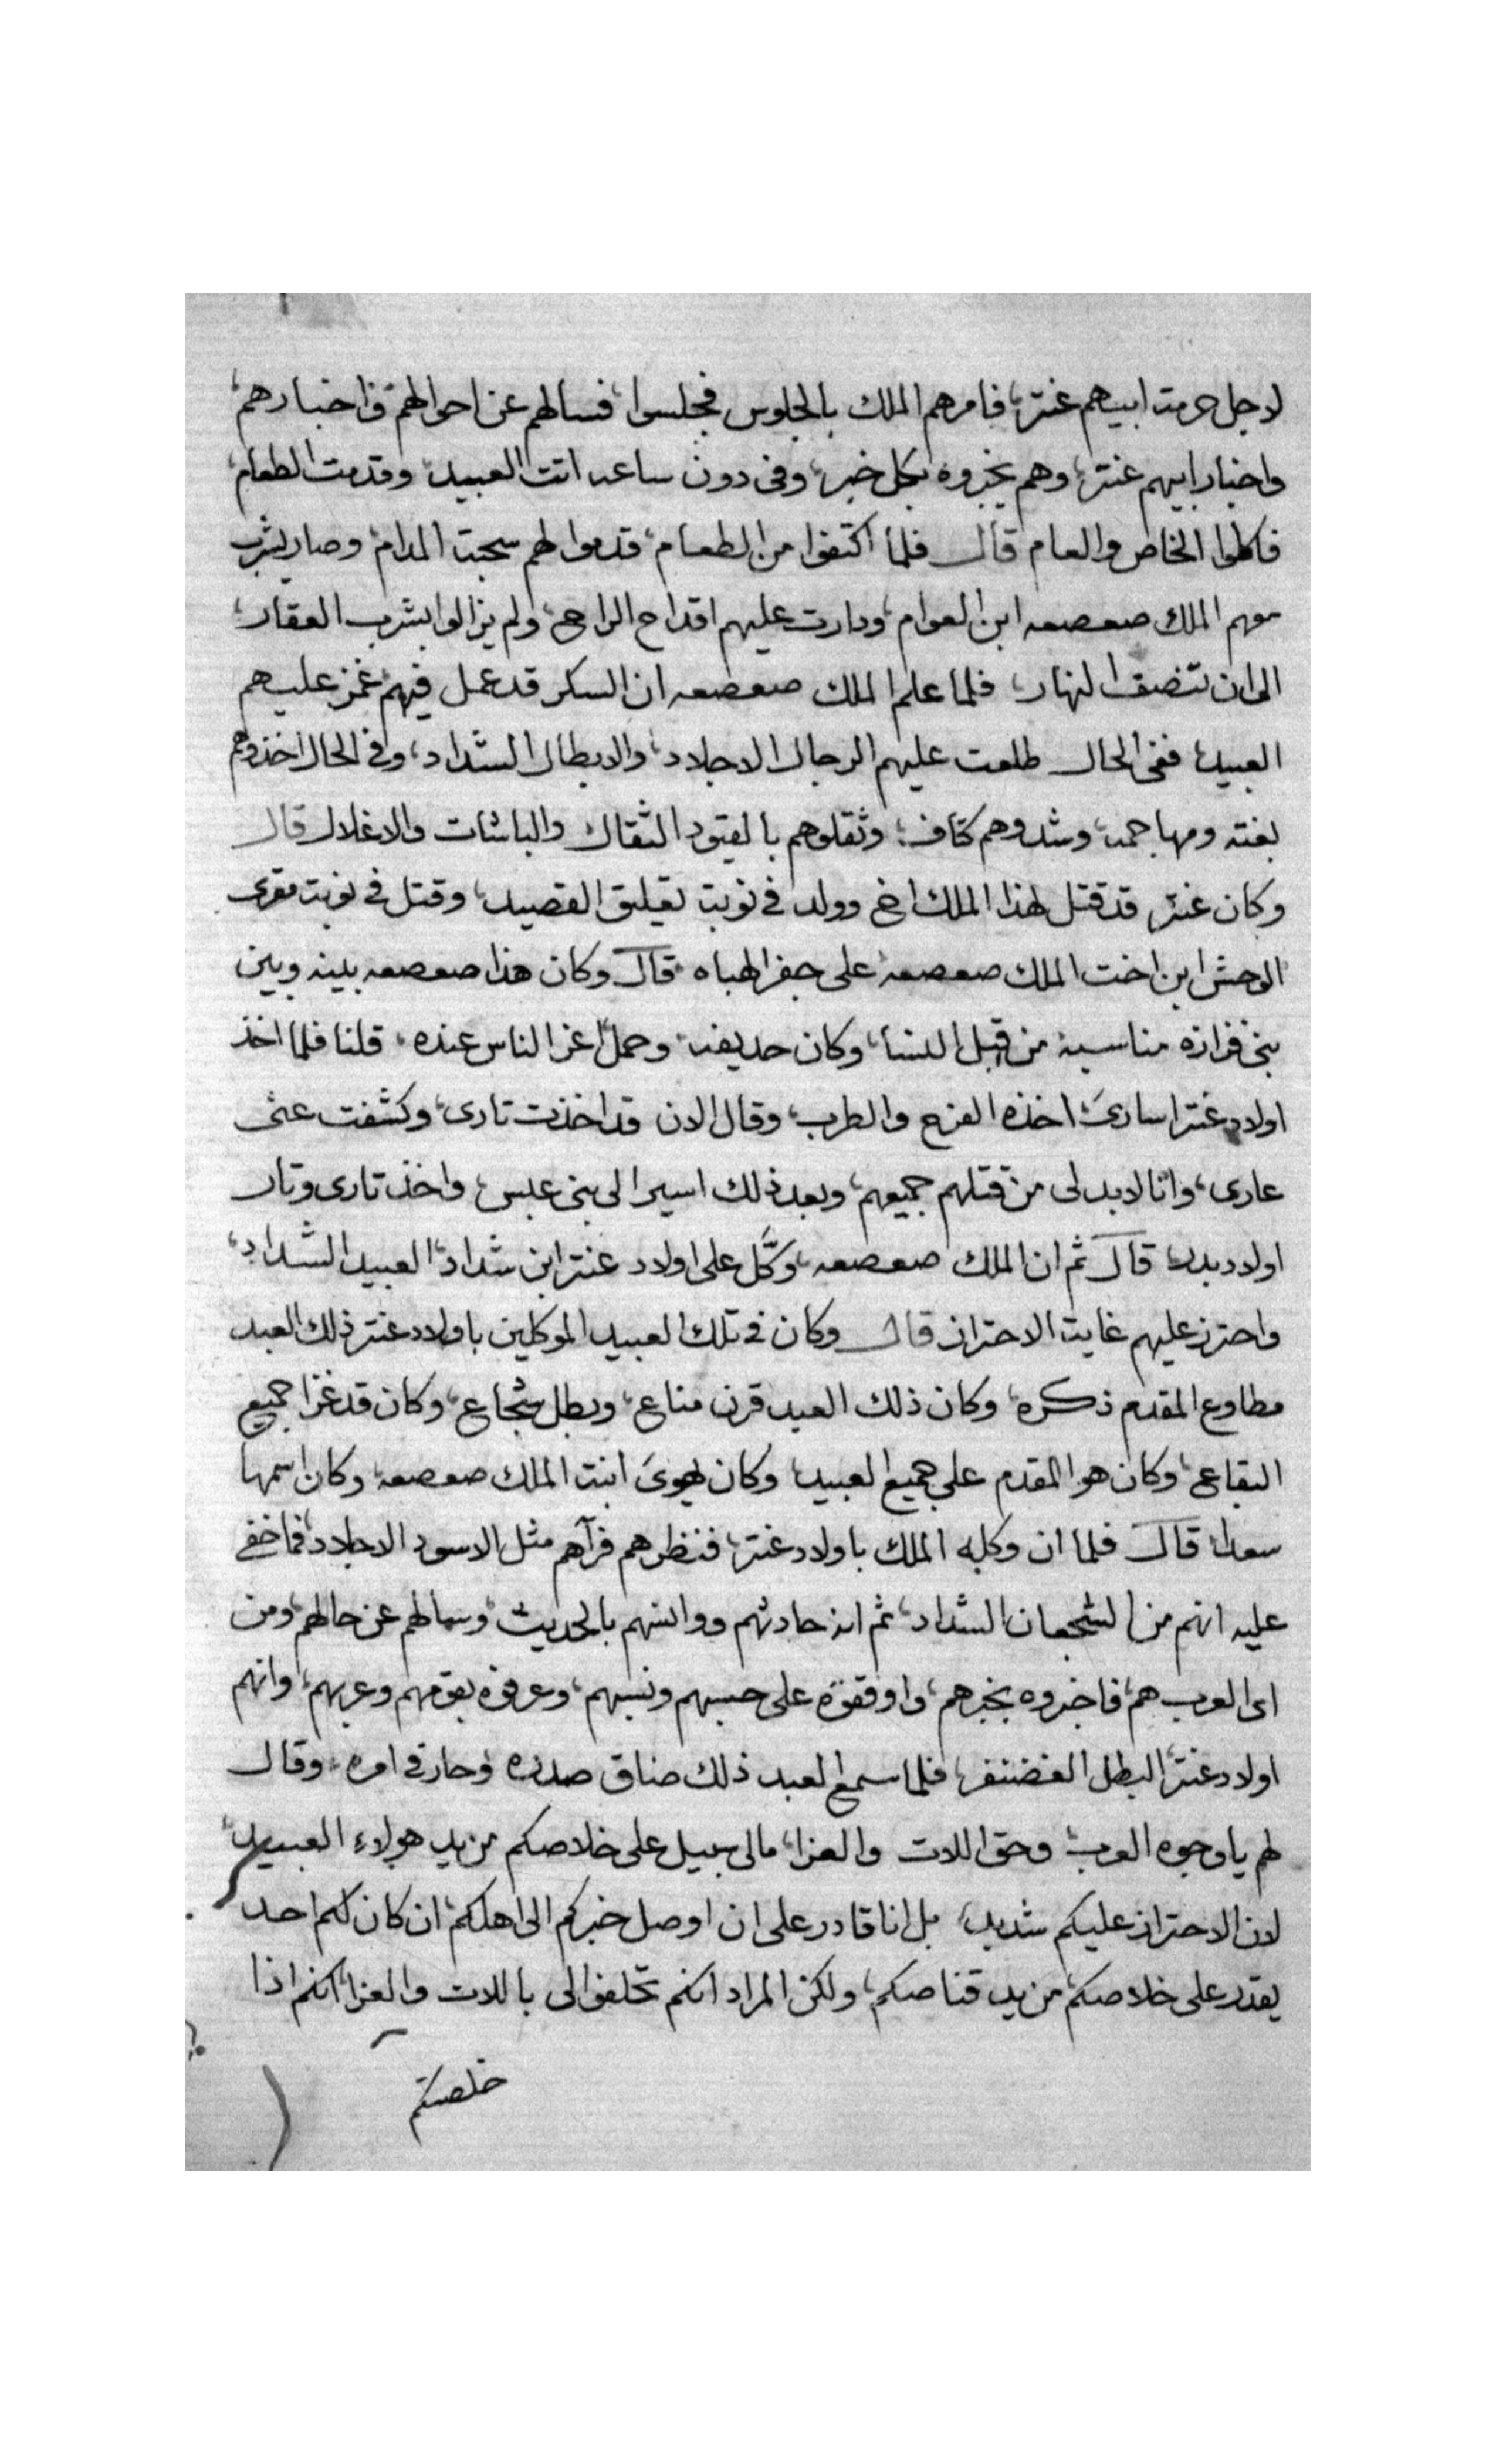 لاجل حرمت ابيهم عنتر، فامرهم الملك بالجلوس فجلسوا، فسالهم عن احوالهم واخبارهم،
واخبار ابيهم عنتر، وهم يخبروه بكل خبر، وفى دون ساعه اتت العبيد، وقدمت الطعام،
فاكلوا الخاص والعام قال فلما اكتفوا من الطعام، قدموا لهم سحبت المدام، وصار يشرب
معهم الملك صعصعه ابن العوام، ودارت عليهم اقداح الراح، ولم يزالوا بشرب العقار،
الى ان تنصف النهار، فلما علم الملك صعصعه ان السكر قد عمل فيهم، غمز عليهم
العبيد، ففى الحال طلعت عليهم الرجال الاجلاد، والابطال الشداد، وفى الحال اخذوهم
بغته ومهاجمه، وشدوهم كتاف، وثقلوهم بالقيود الثقال والباشات والاغلال قال
وكان عنتر قد قتل لهذا الملك اخ وولد فى نوبت تعليق القصيد، وقتل فى نوبت مقرى
الوحش ابن اخت الملك صعصعه على جفر الهباه، قال وكان هذا صعصعه بينه وبين
بنى فزازه مناسبه من قبل النسا، وكان حديفه وحمل اعز الناس عنده، قلنا فلما اخذ
اولاد عنتر اسارى، اخذه الفرح والطرب، وقال الان قد اخذت تارى، وكشفت عنى
عارى، وانا لابد لى من قتلهم جميعهم، وبعد ذلك اسير الى بنى عبس، واخذ تارى وتار
اولاد بدر، قال ثم ان الملك صعصعه، وكّل على اولاد عنتر ابن شداد، العبيد الشداد،
واحترز عليهم غايت الاحتراز قال وكان فى تلك العبيد الموكلين باولاد عنتر ذلك العبد
مطاوع المقدم ذكره، وكان ذلك العبد قرن مناع، وبطل شجاع، وكان قد غزا جميع
البقاع، وكان هو المقدم على جميع العبيد، وكان يهوى ابنت الملك صعصعه، وكان اسمها
سعدا، قال فلما ان وكله الملك باولاد عنتر، فنظرهم فرآهم مثل الاسود الاجلاد، فما خفى
عليه انهم من الشجعان الشداد، ثم انه حادثهم ووانسهم بالحديث، وسالهم عن حالهم، ومن
اى العرب هم، فاخبروه بخبرهم، واوقفوه على حسبهم ونسبهم، وعرفوه بقومهم وعربهم، وانهم
اولاد عنتر، البطل الغضنفر، فلما سمع العبد ذلك ضاق صدره وحار فى امره، وقال
لهم يا وجوه العرب، وحق اللات والعزا، مالى سبيل على خلاصكم من يد هولاء العبيد،
لان الاحتراز عليكم شديد، بل انا قادر على ان اوصل خبركم الى اهلكم، ان كان لكم احد
يقدر على خلاصكم، من يد قناصكم، ولكن المراد انكم تحلفوا لى باللات والعزا، انكم اذا
خلصتكم